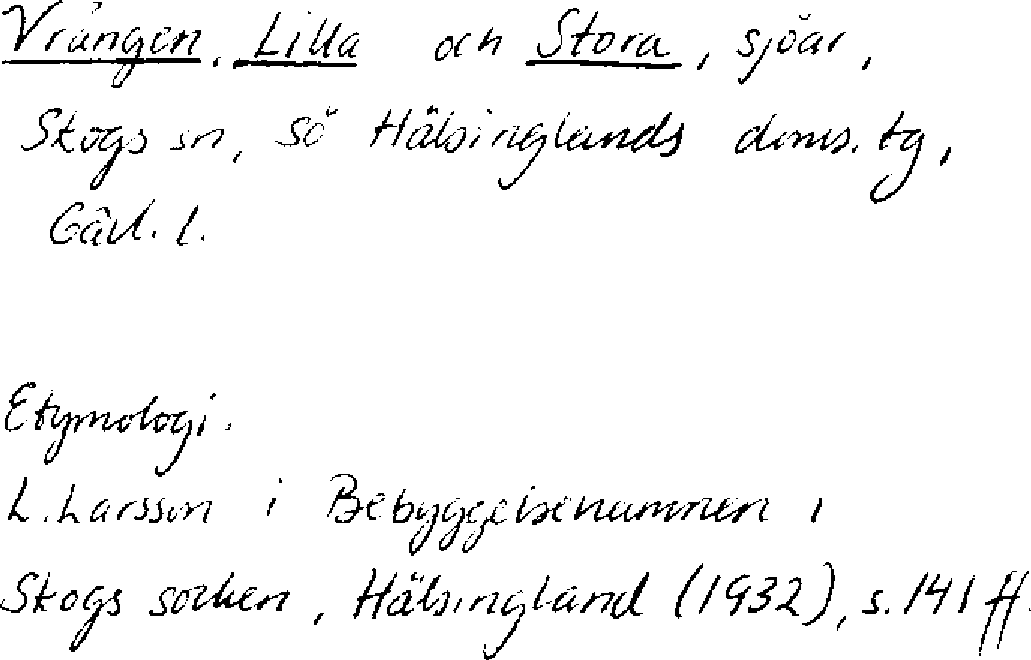 Vrången, Lilla och Stora, sjöar,
Skogs sn, Sö Hälsinglands doms. tg,
Gävl. l.
Etymologi.
L. Larsson i Bebyggelsenamnen i
Skogs socken, Hälsingland (1932), s. 141 ff.